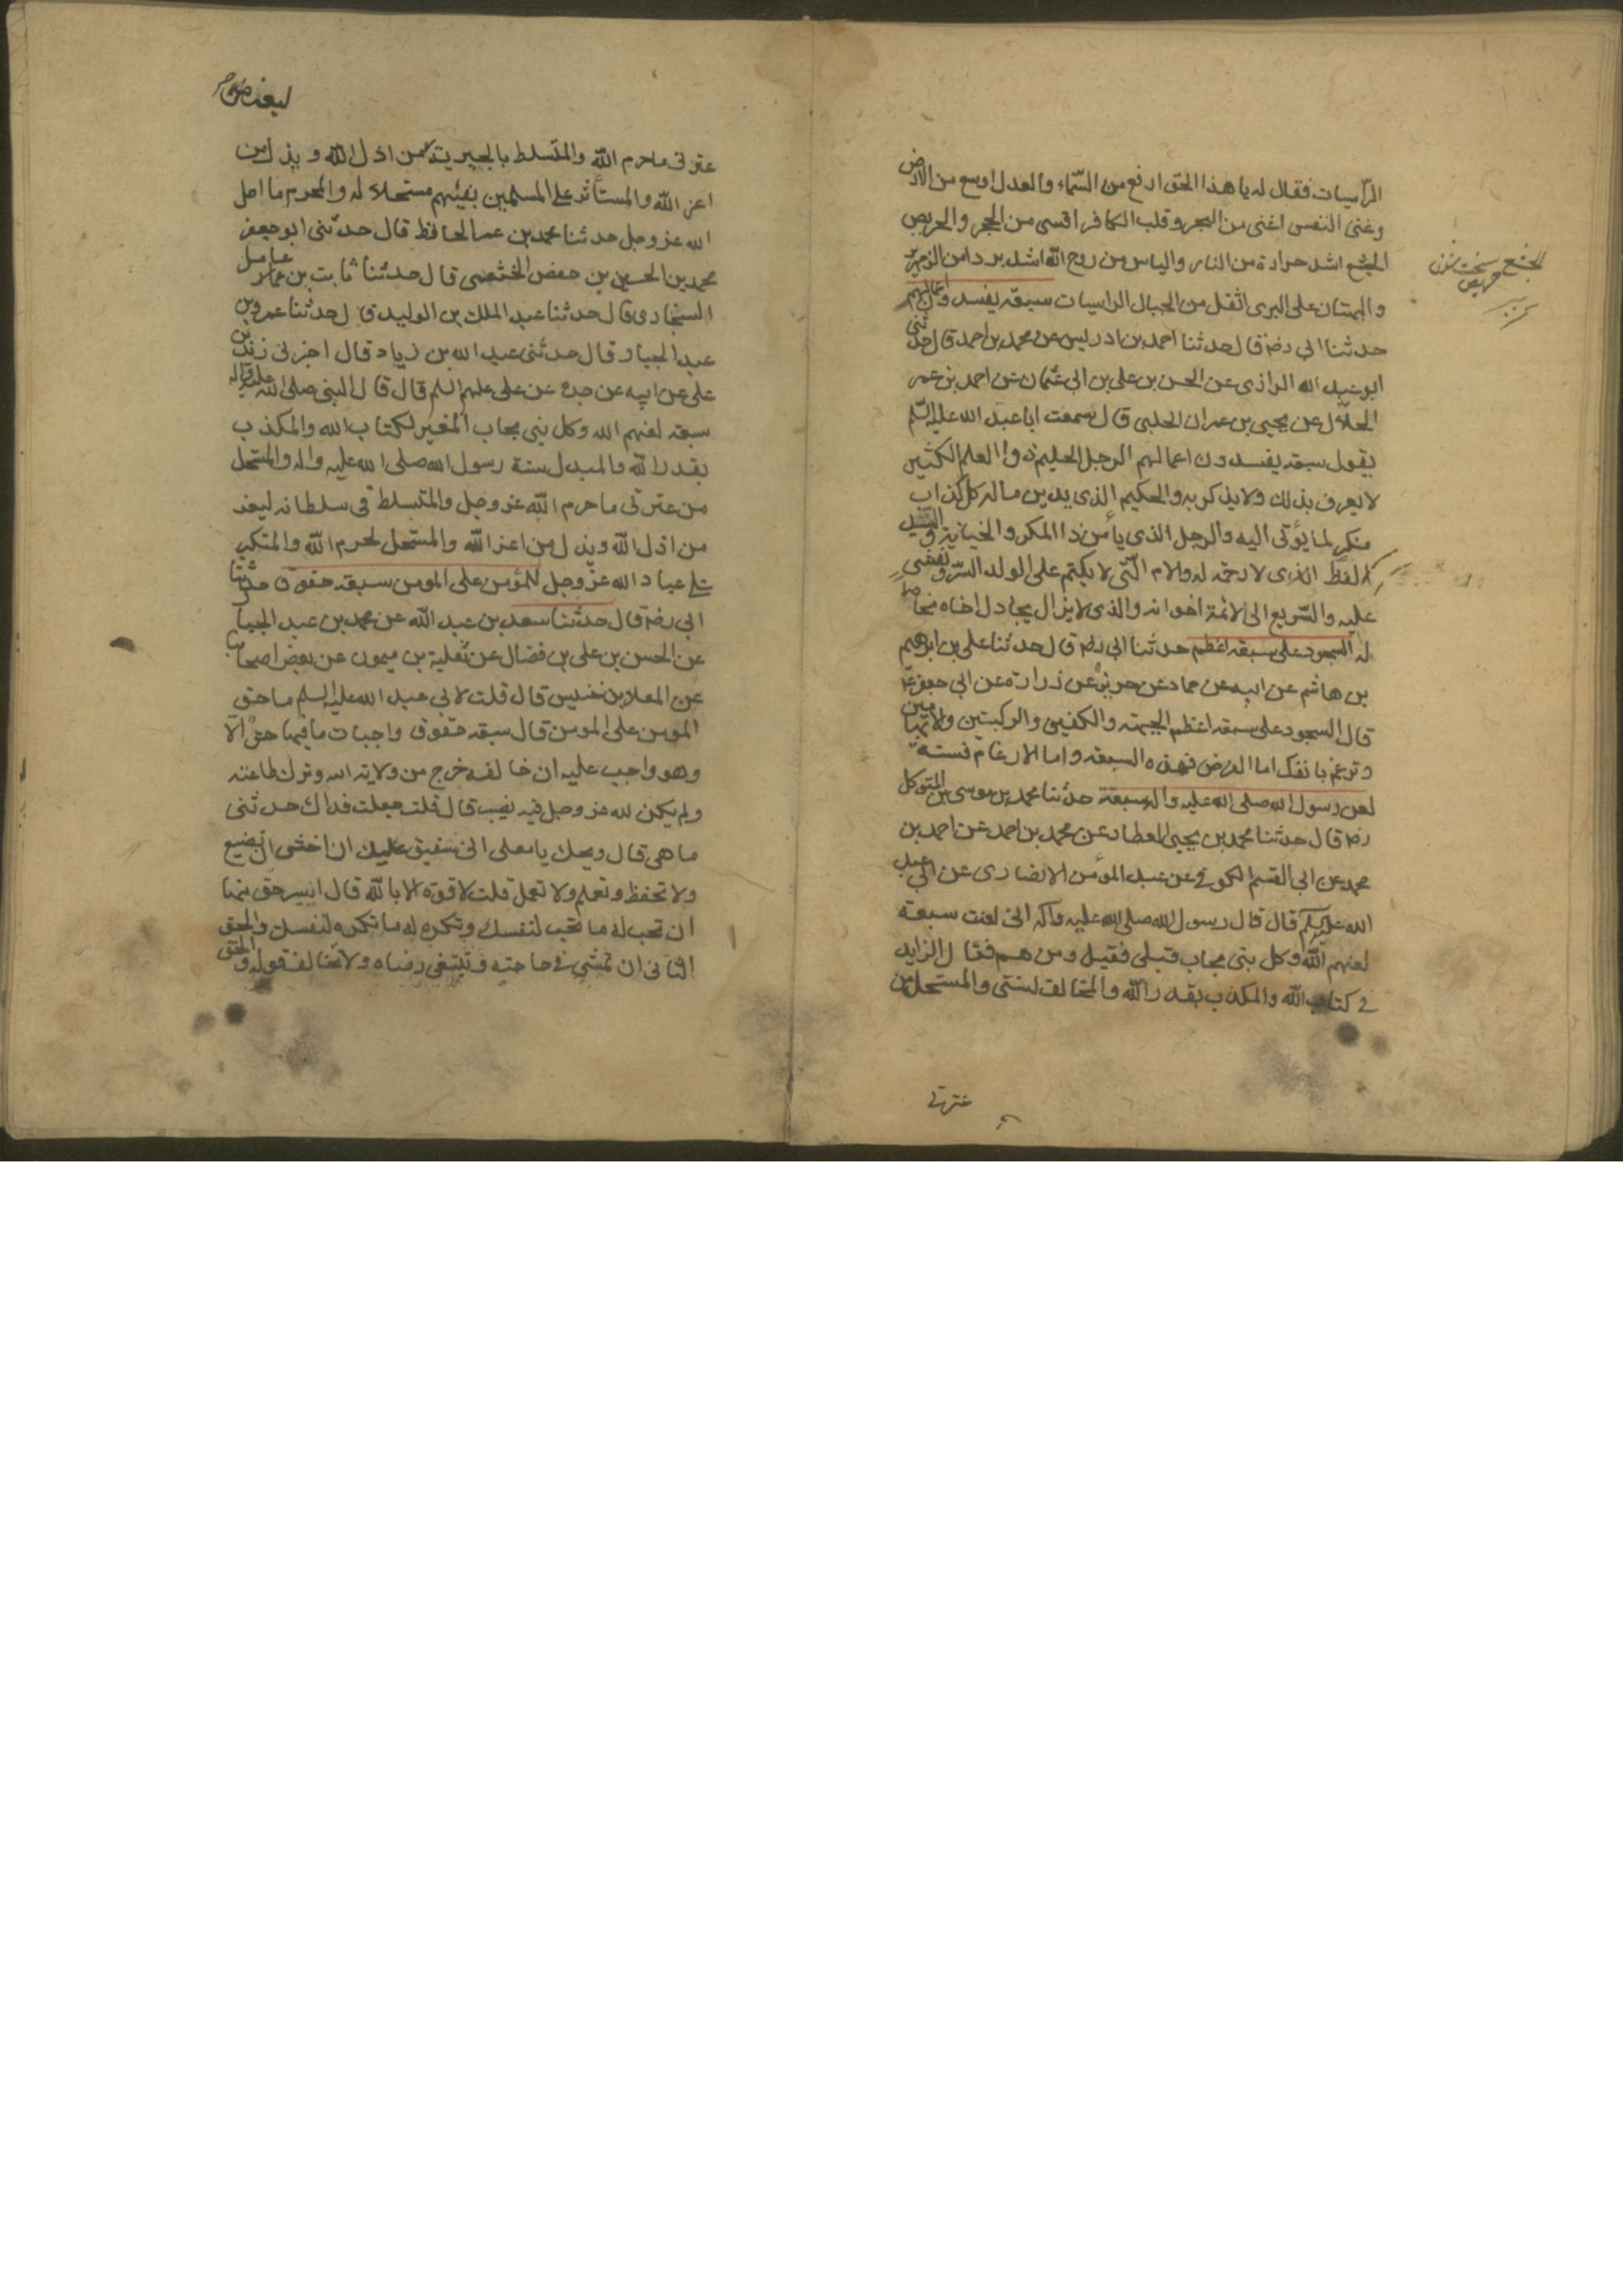 الرّاسيات فقال له يا هذا الحق ارفع من السّماء والعدل اوسع من الارض
وغنى النفس اغنى من البحر وقلب الكافر اقسى من الحجر والحريص
الجشع اشد حرارة من النار والياس من روح الله اشد بردا من الزمهرير
والبهتان على البرى اثقل من الجبال الراسيات سبعة يفسدون اعمالهم
حدثنا ابي رضه قال حدثنا احمد بن ادريس عن محمد بن احمد قال حدثنى
ابو عبد الله الرازى عن الحسن بن على بن ابى عثمان عن احمد بن عمر
الحلّال عن يحيى بن عمران الحلبى قال سمعت ابا عبد الله عليه السّلم
يقول سبعة يفسدون اعمالهم الرجل الحليم ذو العلم الكثير
لا يعرف بذلك ولا يذكر به والحكيم الذى يدين ماله كل كذاب
منكر لما يؤتى اليه والرجل الذى يأمن ذا المكر والخيانة والسّيد
الفظّ الذى لا رحمة له والام الّتى لا تكتم على الولد السّر وتفضى
عليه والسّريع الى لائمة اخوانه والذى لا يزال يجادل اخاه مخاصما
له السجود على سبعة اعظم حدثنا ابى رضه قال حدثنا على بن ابرهيم
بن هاشم عن ابيه عن حماد عن حريز عن زرارة عن ابى جعفر ع
قال السجود على سبعة اعظم الجبهة والكفين والركبتين والابهامين
وترغم بانفك اما الفرض فهذه السبعة واما الارغام فسنة
لعن رسول الله صلى الله عليه واله سبعة حدثنا محمد بن موسى بن المتوكل
رضه قال حدثنا محمد بن يحيى العطار عن محمد بن احمد عن احمد بن
محمد عن ابى القسم الكوفى عن عبد المؤمن الانصارى عن ابى عبد
الله عليه السلم قال قال رسول الله صلى الله عليه وآله انى لعنت سبعة
لعنهم الله وكل نبى مجاب قبلى فقيل ومن هم فقال الزايد
فى كتاب الله والمكذب بقدر الله والمخالف لسنتى والمستحل من
عترتى
الجشع سخت شدن
حريص
عترتى ما حرم الله والمتسلط بالجبرية من اذل الله ويذل من
اعز الله والمستأثر على المسلمين بفيئهم مستحلا له والمحرم ما احل
الله عز وجل حدثنا محمد بن عمر الحافظ قال حدّثنى ابو جعفر
محمد بن الحسين بن حفص الخثعمى قال حدثنا ثابت بن عامر
السنجارى قال حدثنا عبد الملك بن الوليد قال حدثنا عمرو بن
عبد الجبار قال حدثنى عبد الله بن زياد قال اخبرنى زيد بن
على عن ابيه عن جده عن على عليهم السلم قال قال النبى صلى الله عليه واله
سبعة لعنهم الله وكل نبى مجاب المغير لكتاب الله والمكذب
بقدر الله والمبدل سنة رسول الله صلى الله عليه واله والمستحل
من عترتى ما حرم الله عز وجل والمتسلط فى سلطانه ليعز
من اذل الله ويذل من اعز الله والمستحل لحرم الله والمتكبر
على عباد الله عز وجل للمؤمن على المومن سبعة حقوق حدثنا
ابى رضه قال حدثنا سعد بن عبد الله عن محمد بن عبد الجبار
عن الحسن بن على بن فضال عن ثعلبة بن ميمون عن بعض اصحابنا
عن المعلا بن خنيس قال قلت لابى عبد الله عليه السلم ما حق
المومن على المومن قال سبعة حقوق واجبات ما فيها حق الّا
وهو واجب عليه ان خالفه خرج من ولاية الله وترك طاعته
ولم يكن لله عز وجل فيه نصيب قال قلت جعلت فداك حدثنى
ما هى قال ويحك يا معلى انى شفيق عليك ان اخشى ان تضيع
ولا تحفظ وتعلم ولا تعمل قلت لا قوة الا بالله قال ايسر حق منها
ان تحب له ما تحب لنفسك وتكره له ما تكره لنفسك والحق
الثانى ان تمشى فى حاجته وتبتغى رضاه ولا تخالف قوله والحق